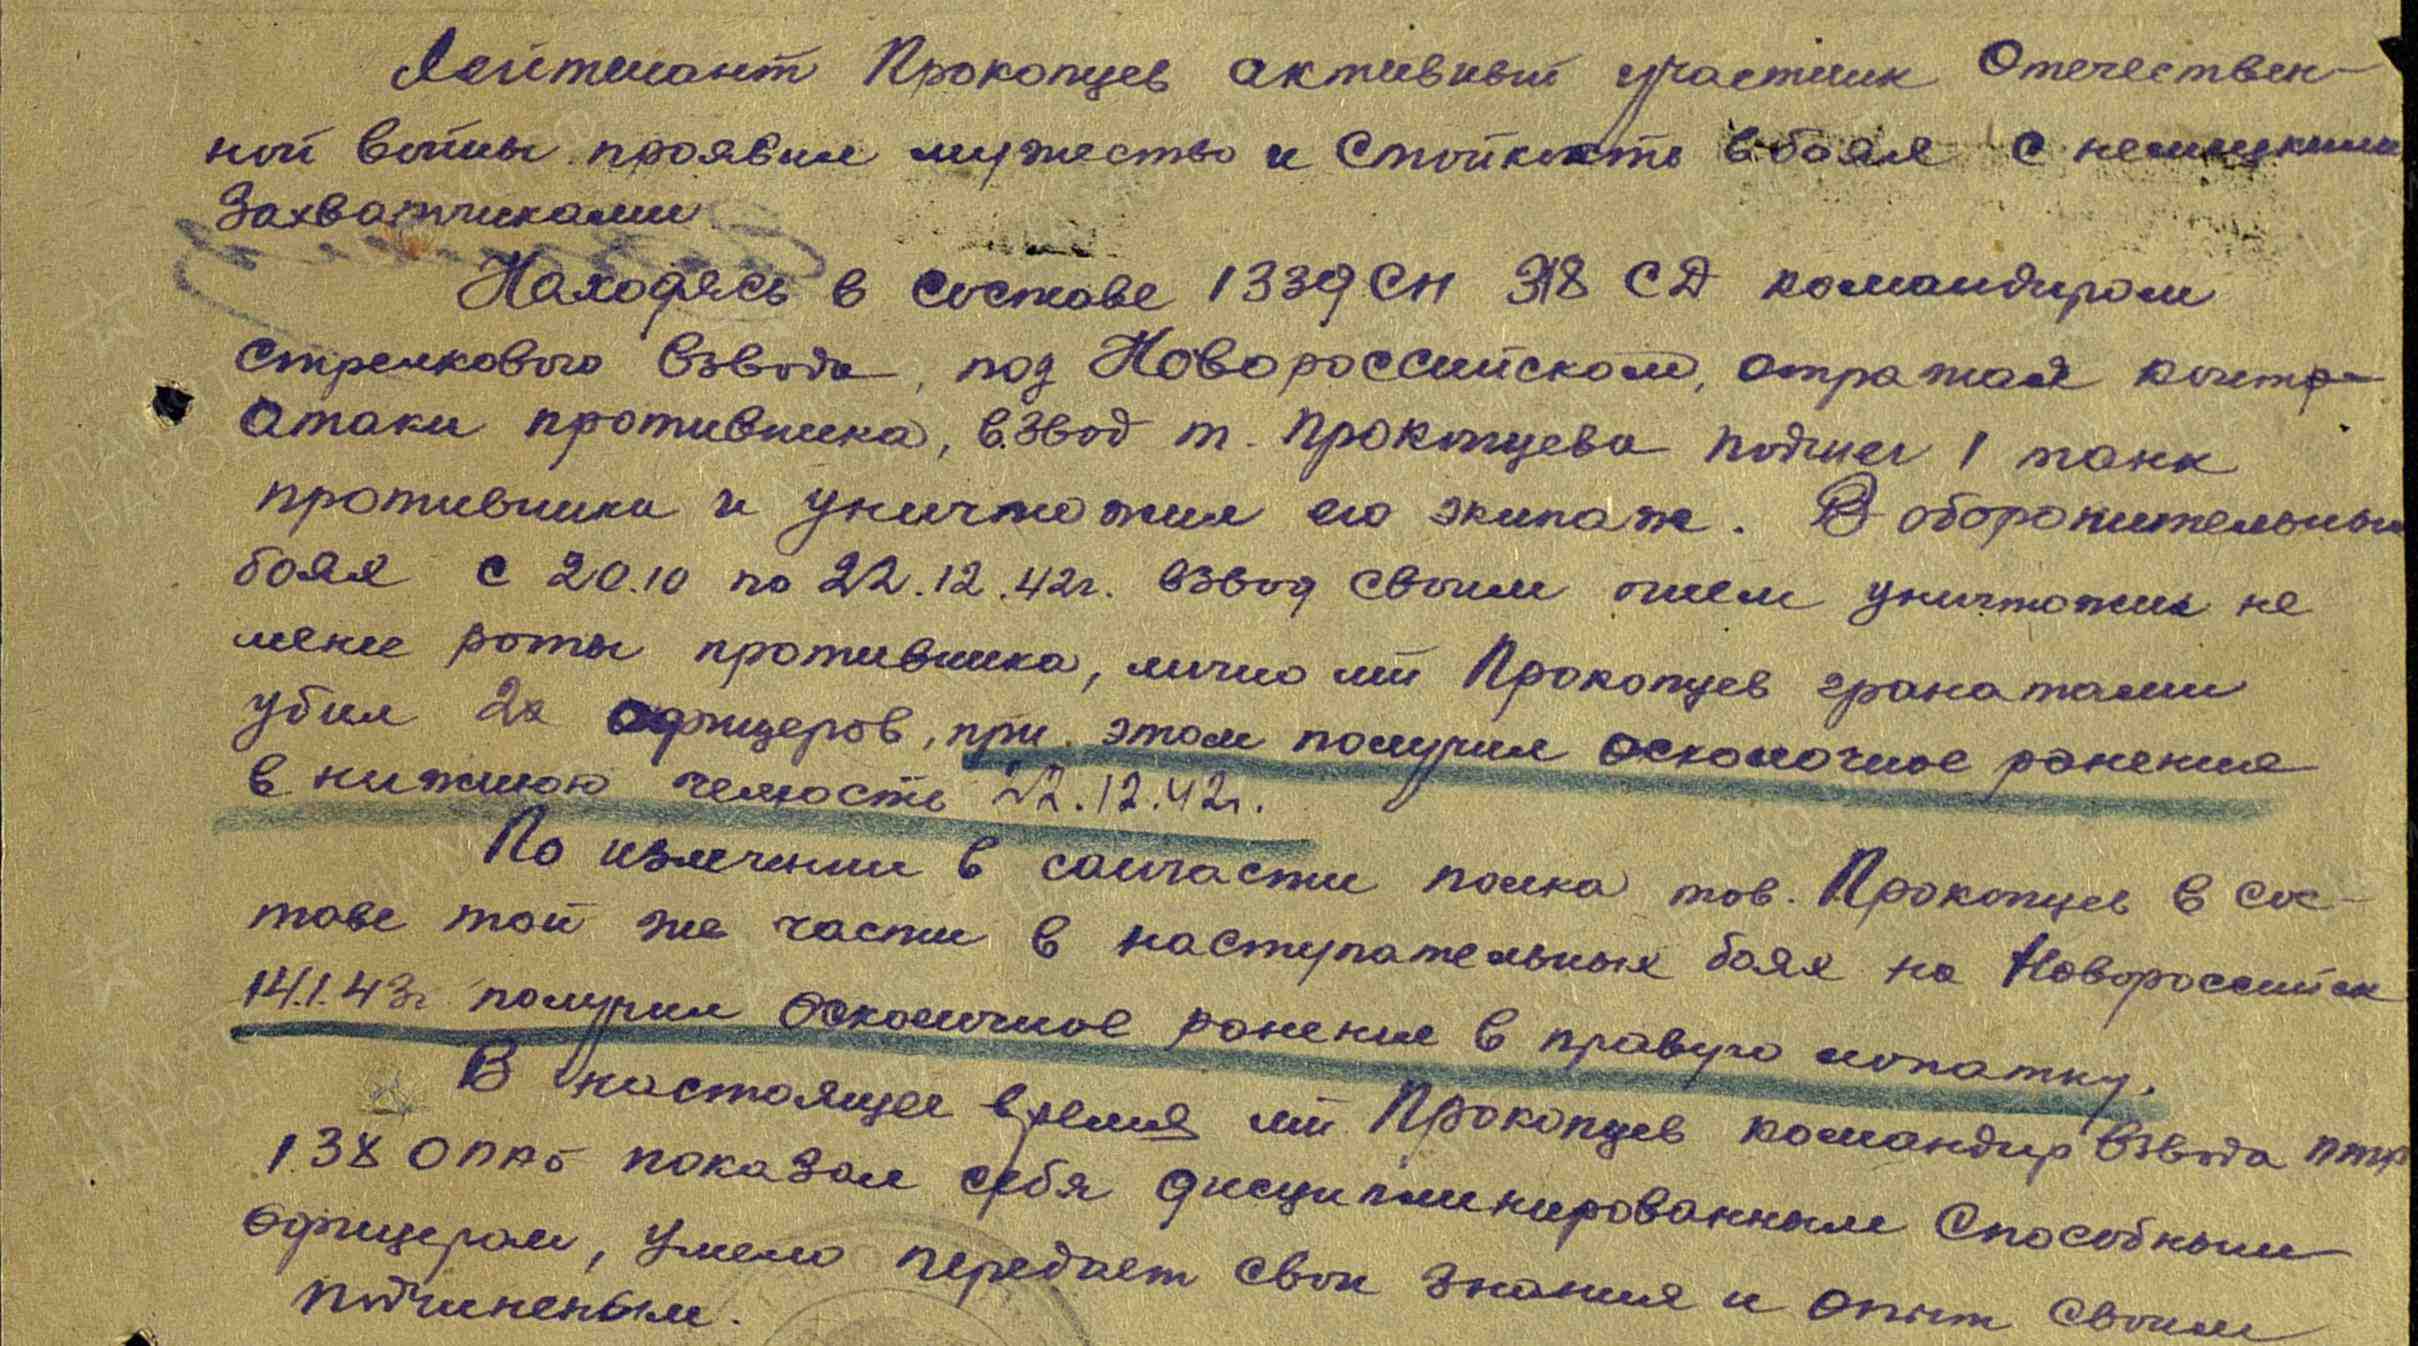 Лейтенант Прокопцев активный участник Отечествен-
ной войны проявил мужество и стойкость в боях с немецкими
захватчиками
Находясь в составе 1339 СП 318 СД командиром
стрелкового взвода, под Новороссийском, отражая контр-
атаки противника, взвод т. Прокопцева поджег 1 танк
противника и уничтожил его экипаж. В оборонительных
боях с 20.10 по 22.12.42г. взвод своим огнем уничтожил не
мене роты противника, лично л-т Прокопцев гранатами
убил 2х офицеров, при этом получил осколочное ранение
в нижнюю челюсть 22.12.42г.
По излечении в санчасти полка тов. Прокопцев в сос-
таве той же части в наступательных боях на Новороссийск
14.1.43г получил осколочное ранение в правую лопатку.
В настоящее время л-т Прокопцев командир взвода птр
138 ОПАБ показал себя дисциплинированным способным
офицером, умело передает свои знания и опыт своим
подчиненым.